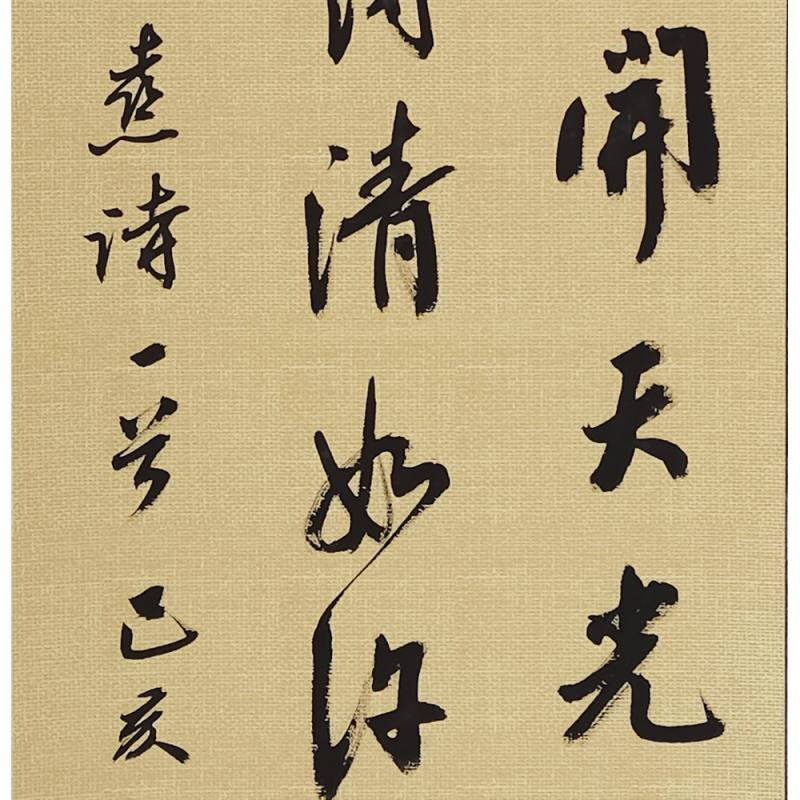 開天光
清如許
熹詩一首己亥